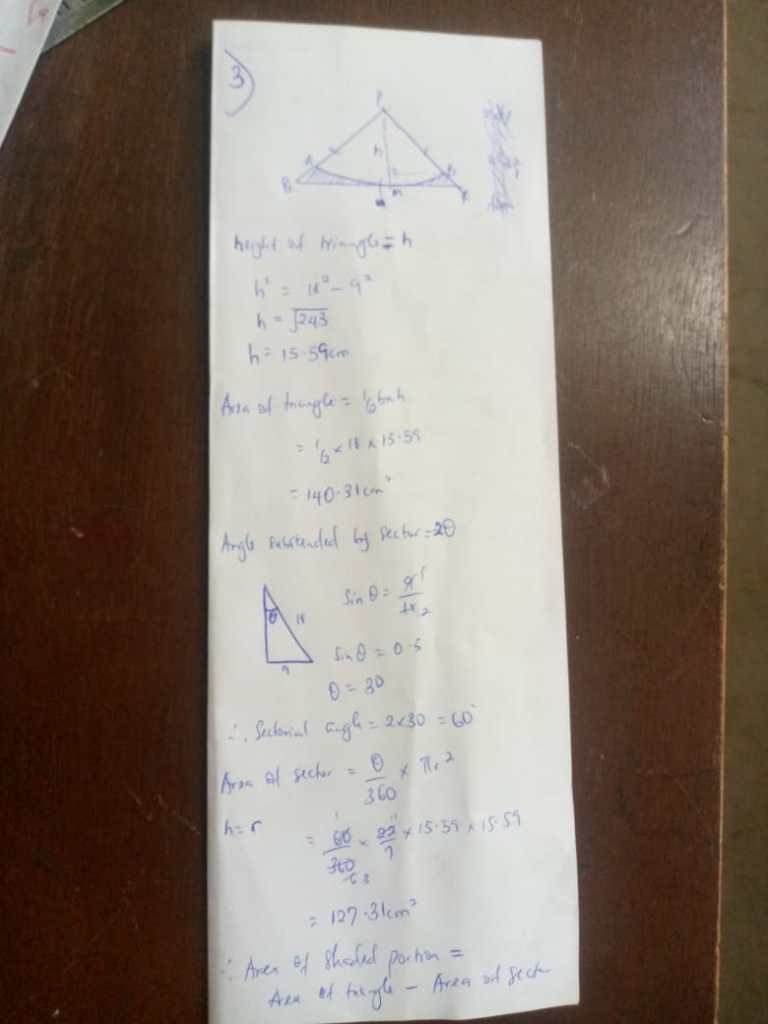 3)
P
h
A
B
m
height of triangle = h
h² = 18² - 9²
h = √243
h = 15.59cm
Area of triangle = ½bxh
= ½ x 18 x 15.59
= 140.31cm²
Angle subtended by sector = 2θ
θ 18
9
Sin θ = 9 1 / 18 2
Sin θ = 0.5
θ = 30
∴ Sectorial angle = 2x30 = 60°
Area of sector = θ/360 x πr²
h = r
= 60 1 / 360 6 3 x 22 11 / 7 x 15.59 x 15.59
= 127.31cm²
∴ Area of shaded portion =
Area of triangle - Area of sector